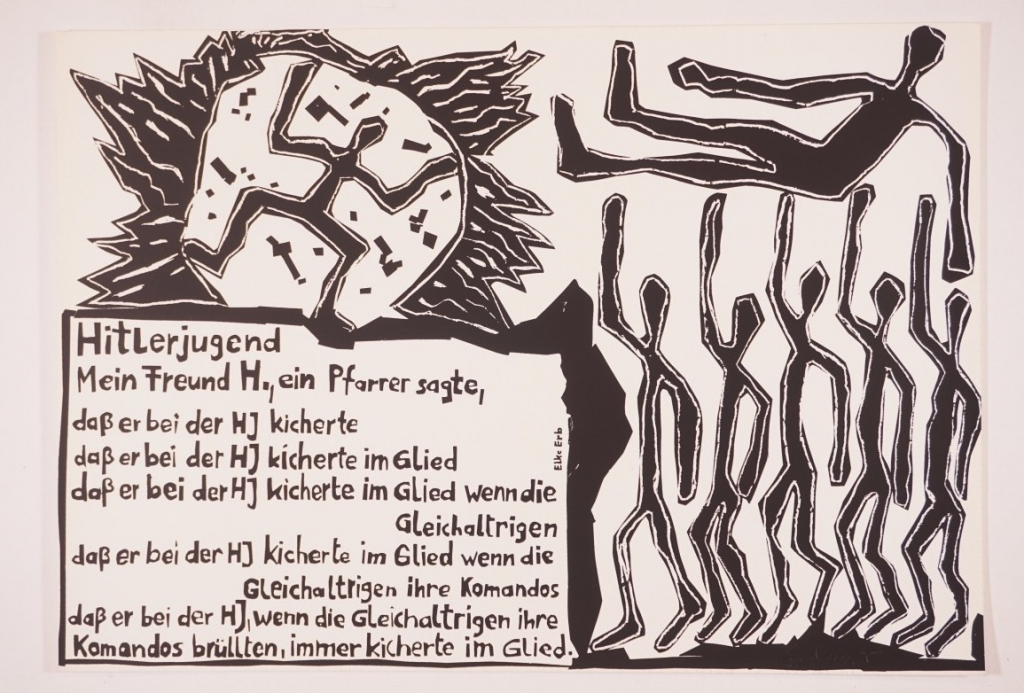 Hitlerjugend
Mein Freund H., ein Pfarrer sagte,
daß er bei der HJ kicherte
daß er bei der HJ kicherte im Glied
daß er bei der HJ kicherte im Glied wenn die
Gleichaltrigen
daß er bei der HJ kicherte im Glied wenn die
Gleichaltrigen ihre Komandos
daß er bei der HJ, wenn die Gleichaltrigen ihre
Komandos brüllten, immer kicherte im Glied.
Elke Erb